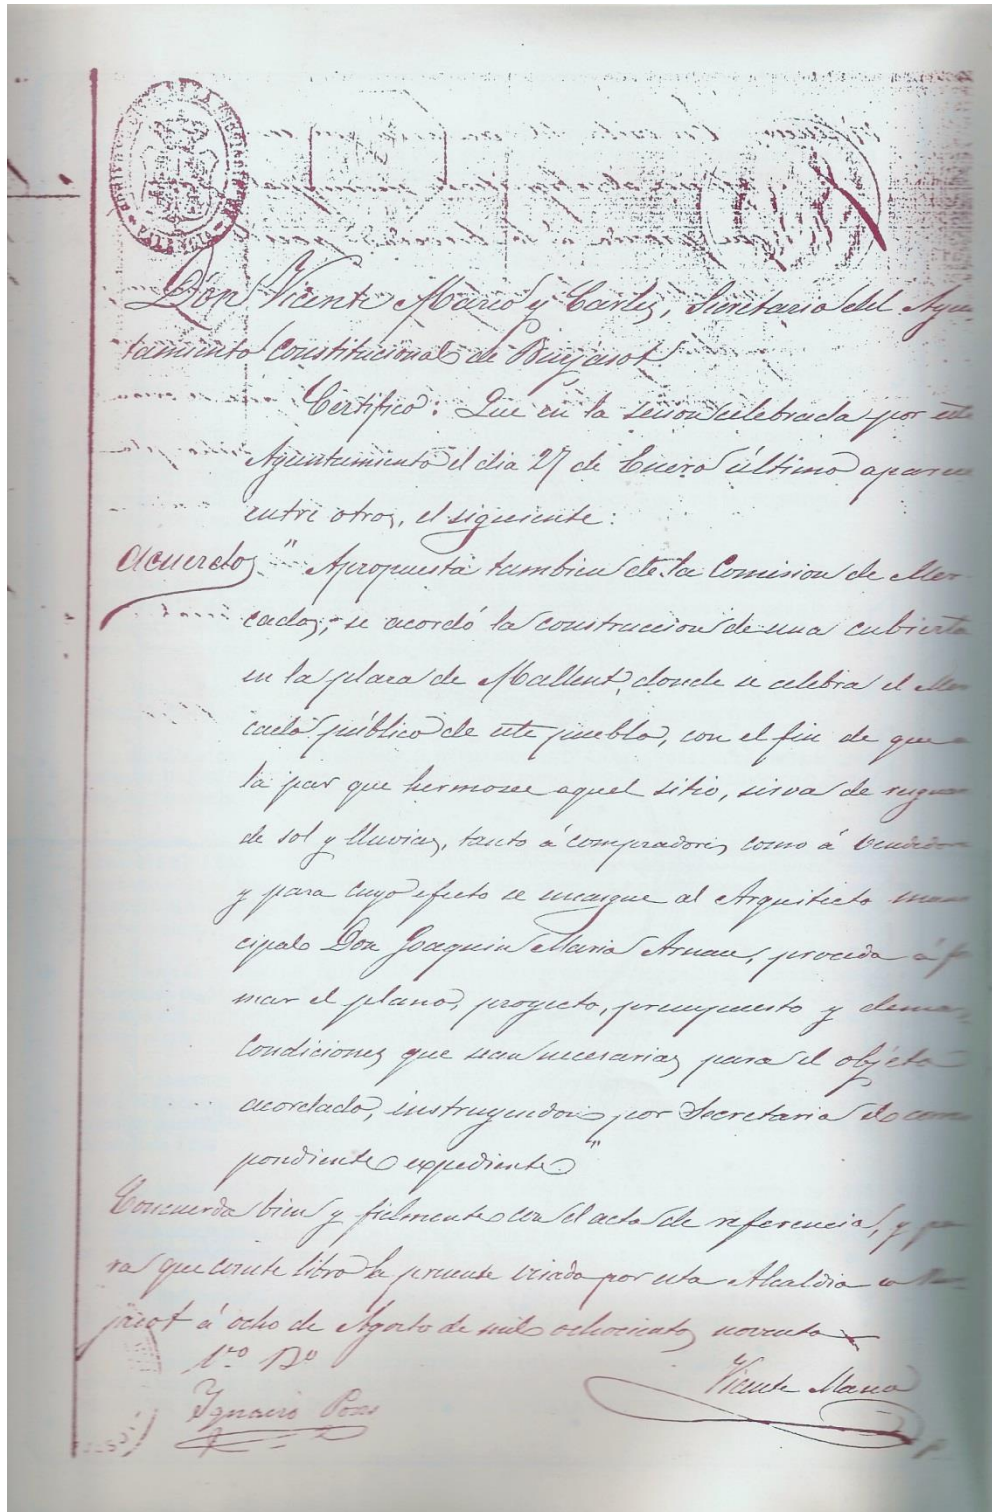 VALENCIA
Don Vicente Marco y Carles, Secretario del Ayun-
tamiento Constitucional de Burjasot
Certifico: Que en la sesion celebrada por este
Ayuntamiento el dia 27 de Enero último aparece
entre otros, el siguiente:
Acuerdos " Apropuesta tambien de la Comision de Mer-
cados; se acordó la construccion de una cubierta
en la plaza de Mallent, donde se celebra el Mer
cado público de este pueblo, con el fin de que
la par que hermosee aquel sitio, sirva de
de sol y lluvias, tanto á compradores, como á
y para cuyo efecto se encargue al Arquitecto
cipal Don Joaquin Maria Arnau, proceda á
mar el plano, proyecto, presupuesto y demas
condiciones que sean necesarias para el objeto
acordado, instruyendose por Secretaria el
pondiente expediente"
Concuerda bien y fielmente con el acta de referencia, y pa
ra que conste libro la presente visada por esta Alcaldia
jasot á ocho de Agosto de mil ochocientos noventa
Vto Bo
Ignacio Pons
Vicente Marco